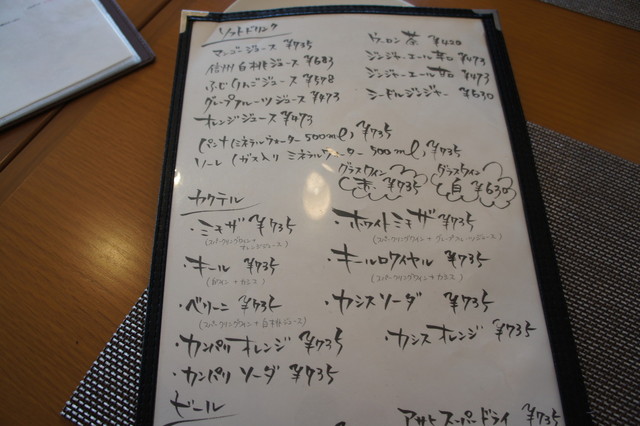 ソフトドリンク
マンゴージュース ¥735
信州白桃ジュース ¥683
ふじりんごジュース ¥578
グレープフルーツジュース ¥473
オレンジジュース ¥473
ウーロン茶 ¥420
ジンジャーエール甘口 ¥473
ジンジャーエール辛口 ¥473
シードルジンジャー ¥630
パンナ(ミネラルウォーター 500ml) ¥735
ソーレ(ガス入りミネラルウォーター 500ml) ¥735
グラスワイン 赤 ¥735
グラスワイン 白 ¥630
カクテル
・ミモザ ¥735
(スパークリングワイン+オレンジジュース)
・ホワイトミモザ ¥735
(スパークリングワイン+グレープフルーツジュース)
・キール ¥735
(白ワイン+カシス)
・キールロワイヤル ¥735
(スパークリングワイン+カシス)
・ベリーニ ¥735
(スパークリングワイン+白桃ジュース)
・カシスソーダ ¥735
・カンパリオレンジ ¥735
・カシスオレンジ ¥735
・カンパリソーダ ¥735
ビール
アサヒスーパードライ ¥735